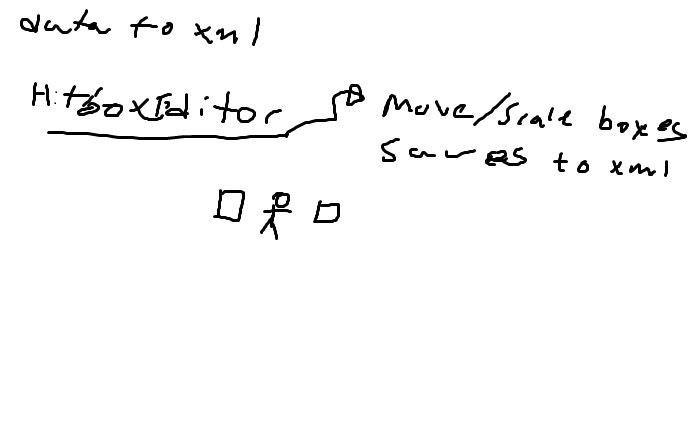 data to xml
HitboxEditor
Move/Scale boxes
Saves to xml